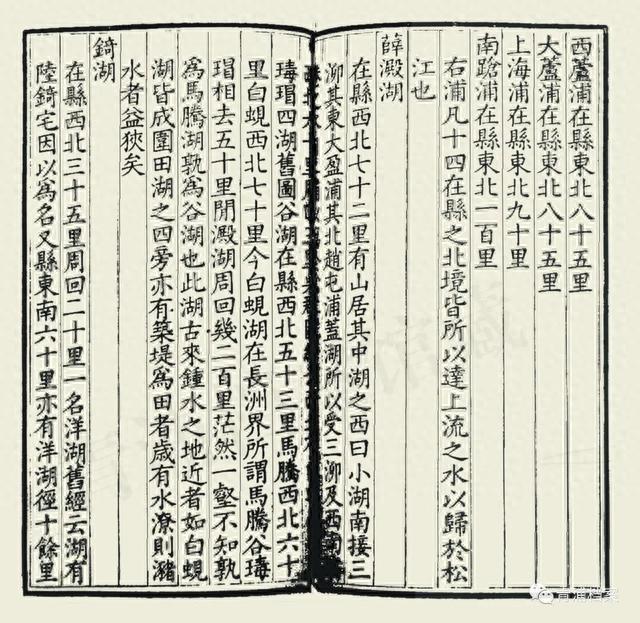 西蘆浦在縣東北八十五里
大蘆浦在縣東北八十五里
上海浦在縣東北九十里
南蹌浦在縣東北一百里
右浦凡十四在縣之北境皆所以達上流之水以歸於松
江也
薛澱湖
在縣西北七十二里有山居其中湖之西曰小湖南接三
泖其東大盈浦其北趙屯浦蓋湖所以受三泖及西南
瑇瑁四湖舊圖谷湖在縣西北五十三里馬騰西北六十
里白蜆西北七十里今白蜆湖在長洲界所謂馬騰谷瑇
瑁相去五十里閒澱湖周回幾二百里茫然一壑不知孰
爲馬騰湖孰爲谷湖也此湖古來鍾水之地近者如白蜆
湖皆成圍田湖之四旁亦有築堤爲田者歲有水潦則瀦
水者益狹矣
錡湖
在縣西北三十五里周回二十里一名洋湖舊經云湖有
陸錡宅因以爲名又縣東南六十里亦有洋湖徑十餘里
青浦档案